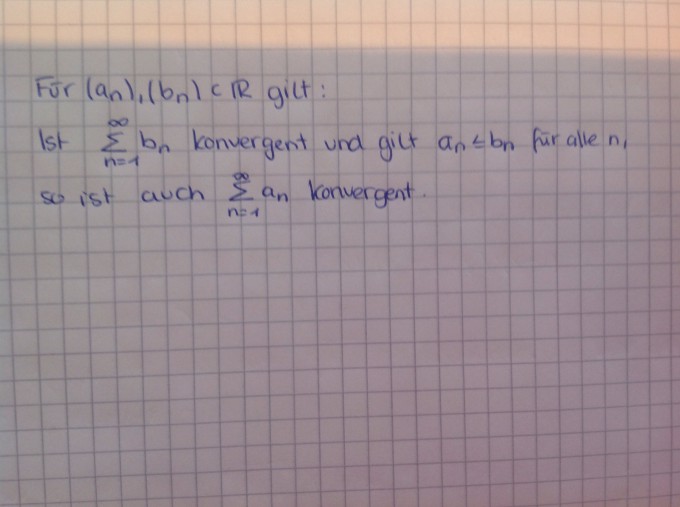 Für (an), (bn) ⊂ ℝ gilt:
Ist ∑_{n=1}^{∞} bn konvergent und gilt an ≤ bn für alle n,
so ist auch ∑_{n=1}^{∞} an konvergent.